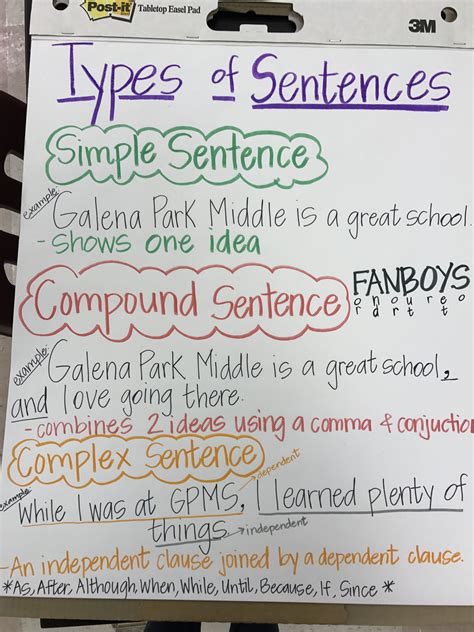 Post-it Tabletop Easel Pad
3M
Types of Sentences
Simple Sentence
example:
Galena Park Middle is a great school.
- shows one idea
Compound Sentence
FANBOYS
o n o u r e o
r d r t t
example:
Galena Park Middle is a great school,
and I love going there.
- combines 2 ideas using a comma & conjuction
Complex Sentence
dependent
example:
While I was at GPMS, I learned plenty of
things. independent
- An independent clause joined by a dependent clause.
*As, After, Although, When, While, Until, Because, If, Since *